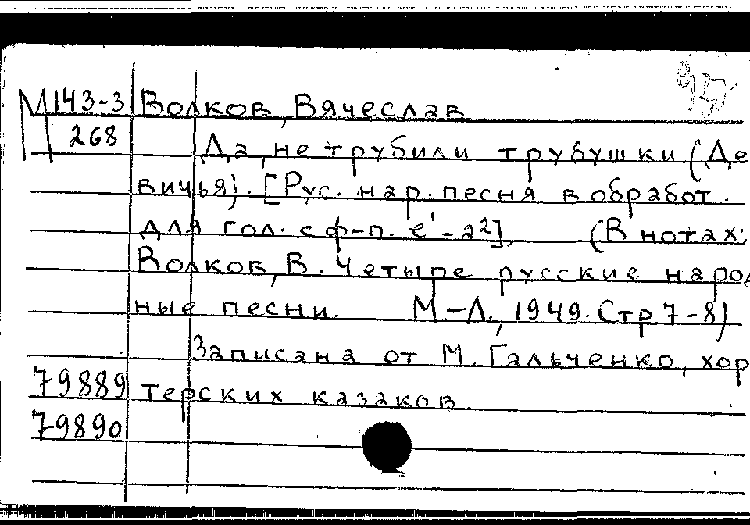 М 143-3 Волков, Вячеслав
268
Да не трубили трубушки (Де
вичья). [Рус. нар. песня в обработ.
для гол. с ф-п. e¹-a²]. (В нотах:
Волков, В. Четыре русские народ
ные песни. М-Л., 1949. Стр 7-8)
Записана от М. Гальченко, хор
79889 терских казаков.
79890